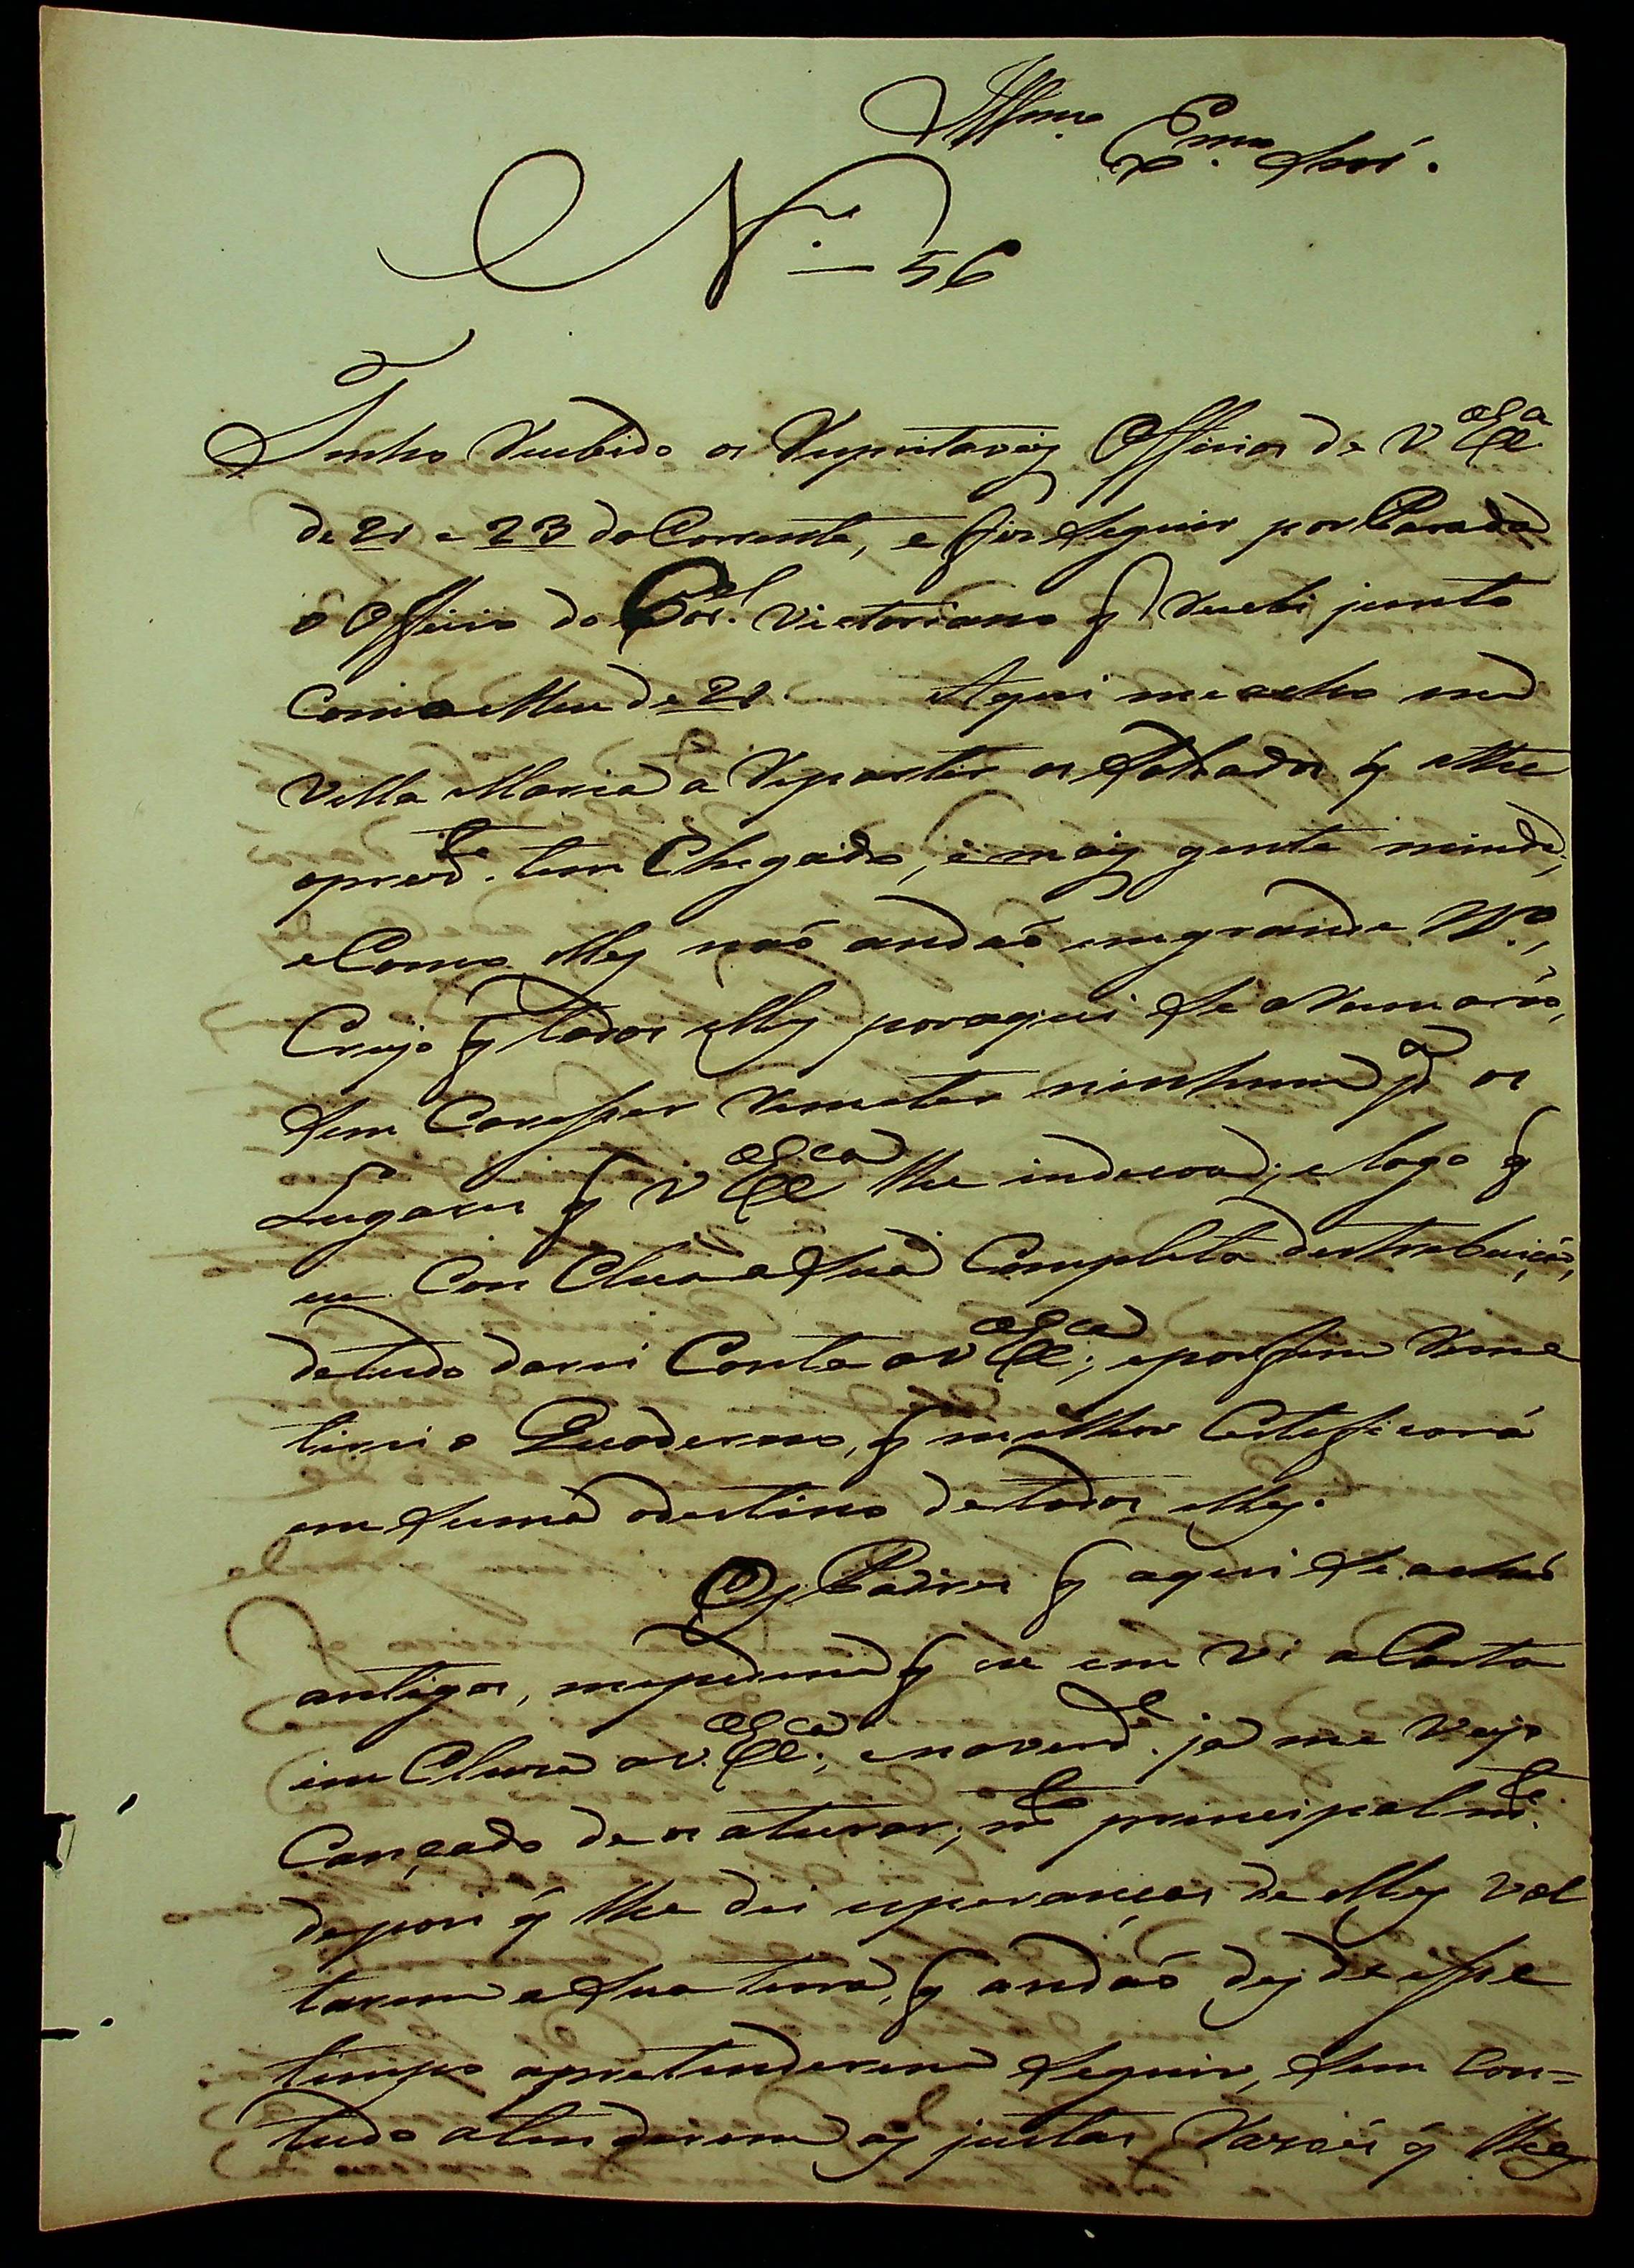 Illmo. Exmo. Snr.
N.º 56
Tenho Recebido os Respeitaveis Officios de V Exa.
de 21 e 23 do Corrente, e fiz seguir por Parada
o Officio do Cor.el Victoriano q Recebi junto
Com o Meu de 21. Aqui me acho
Villa Maria a Repartir os Soldados q athe
o prez.te tem Chegado, e mais gente
e Como elles naõ andaõ em grande N.º,
Creyo q todos elles por aqui Se
Sem Remeter nenhum p.ª os
Lugares q V Exca. lhe indicou; e logo q
eu Con Clua a Sua Completa destrebuiçaõ,
de tudo darei Conta a V Exca.; e por fim Reme
terei o Quaderno, q melhor Certeficará
em Suma o destino de todos elles.
Os Padres q aqui Se achaõ
antigos, me pediraõ q em Vi a Carta
in Cluza a V. Exca.; e na verd.e ja me Vejo
Cançado de os aturar, m.to principalm.te
depois q lhe dei esperanças de elles Vol
tarem a Sua terra, q andaõ desde esse
tempo a pretenderem Seguir, Sem Con=
tudo atenderem as justas Razoẽs q lhes